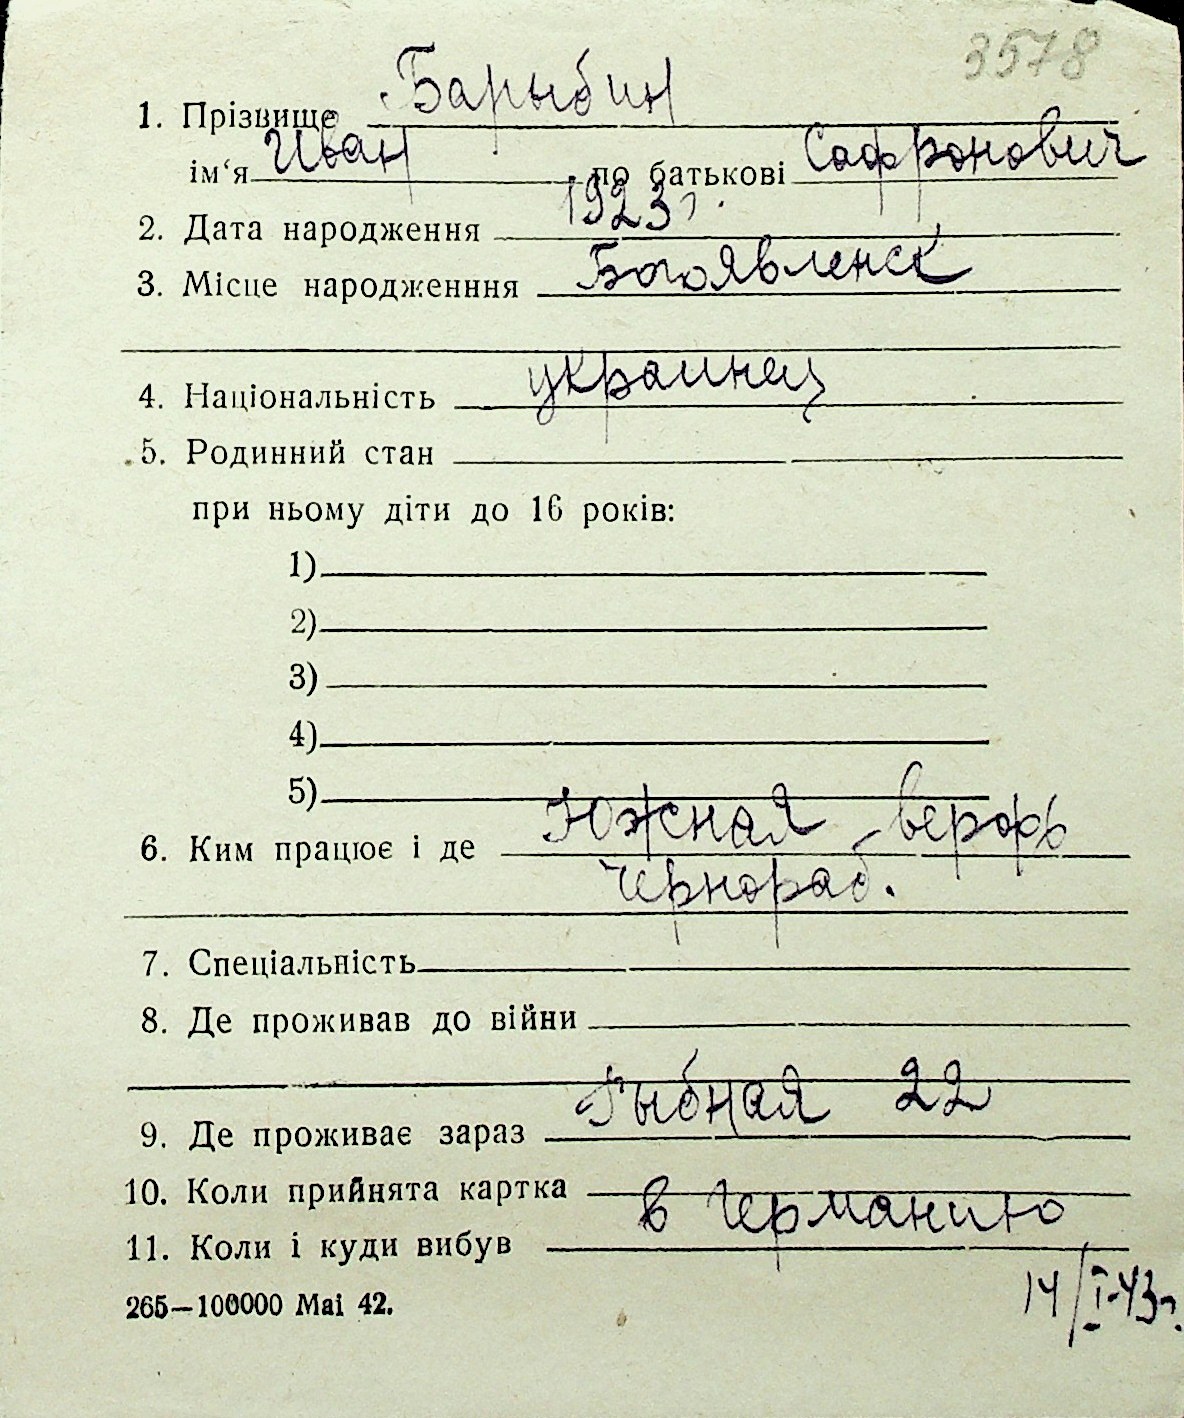 3578
1. Прізвище Барыбин
ім‘я Иван по батькові Сафронович
2. Дата народження 1923 г.
3. Місце народженння Богоявленск
4. Національність украинец
5. Родинний стан
при ньому діти до 16 років:
1)
2)
3)
4)
5)
6. Ким працює і де Южная верфь
Чернораб.
7. Спеціальність
8. Де проживав до війни
9. Де проживає зараз Рыбная 22
10. Коли прийнята картка
11. Коли і куди вибув в Германию
14/I-43г.
265—100000 Mai 42.